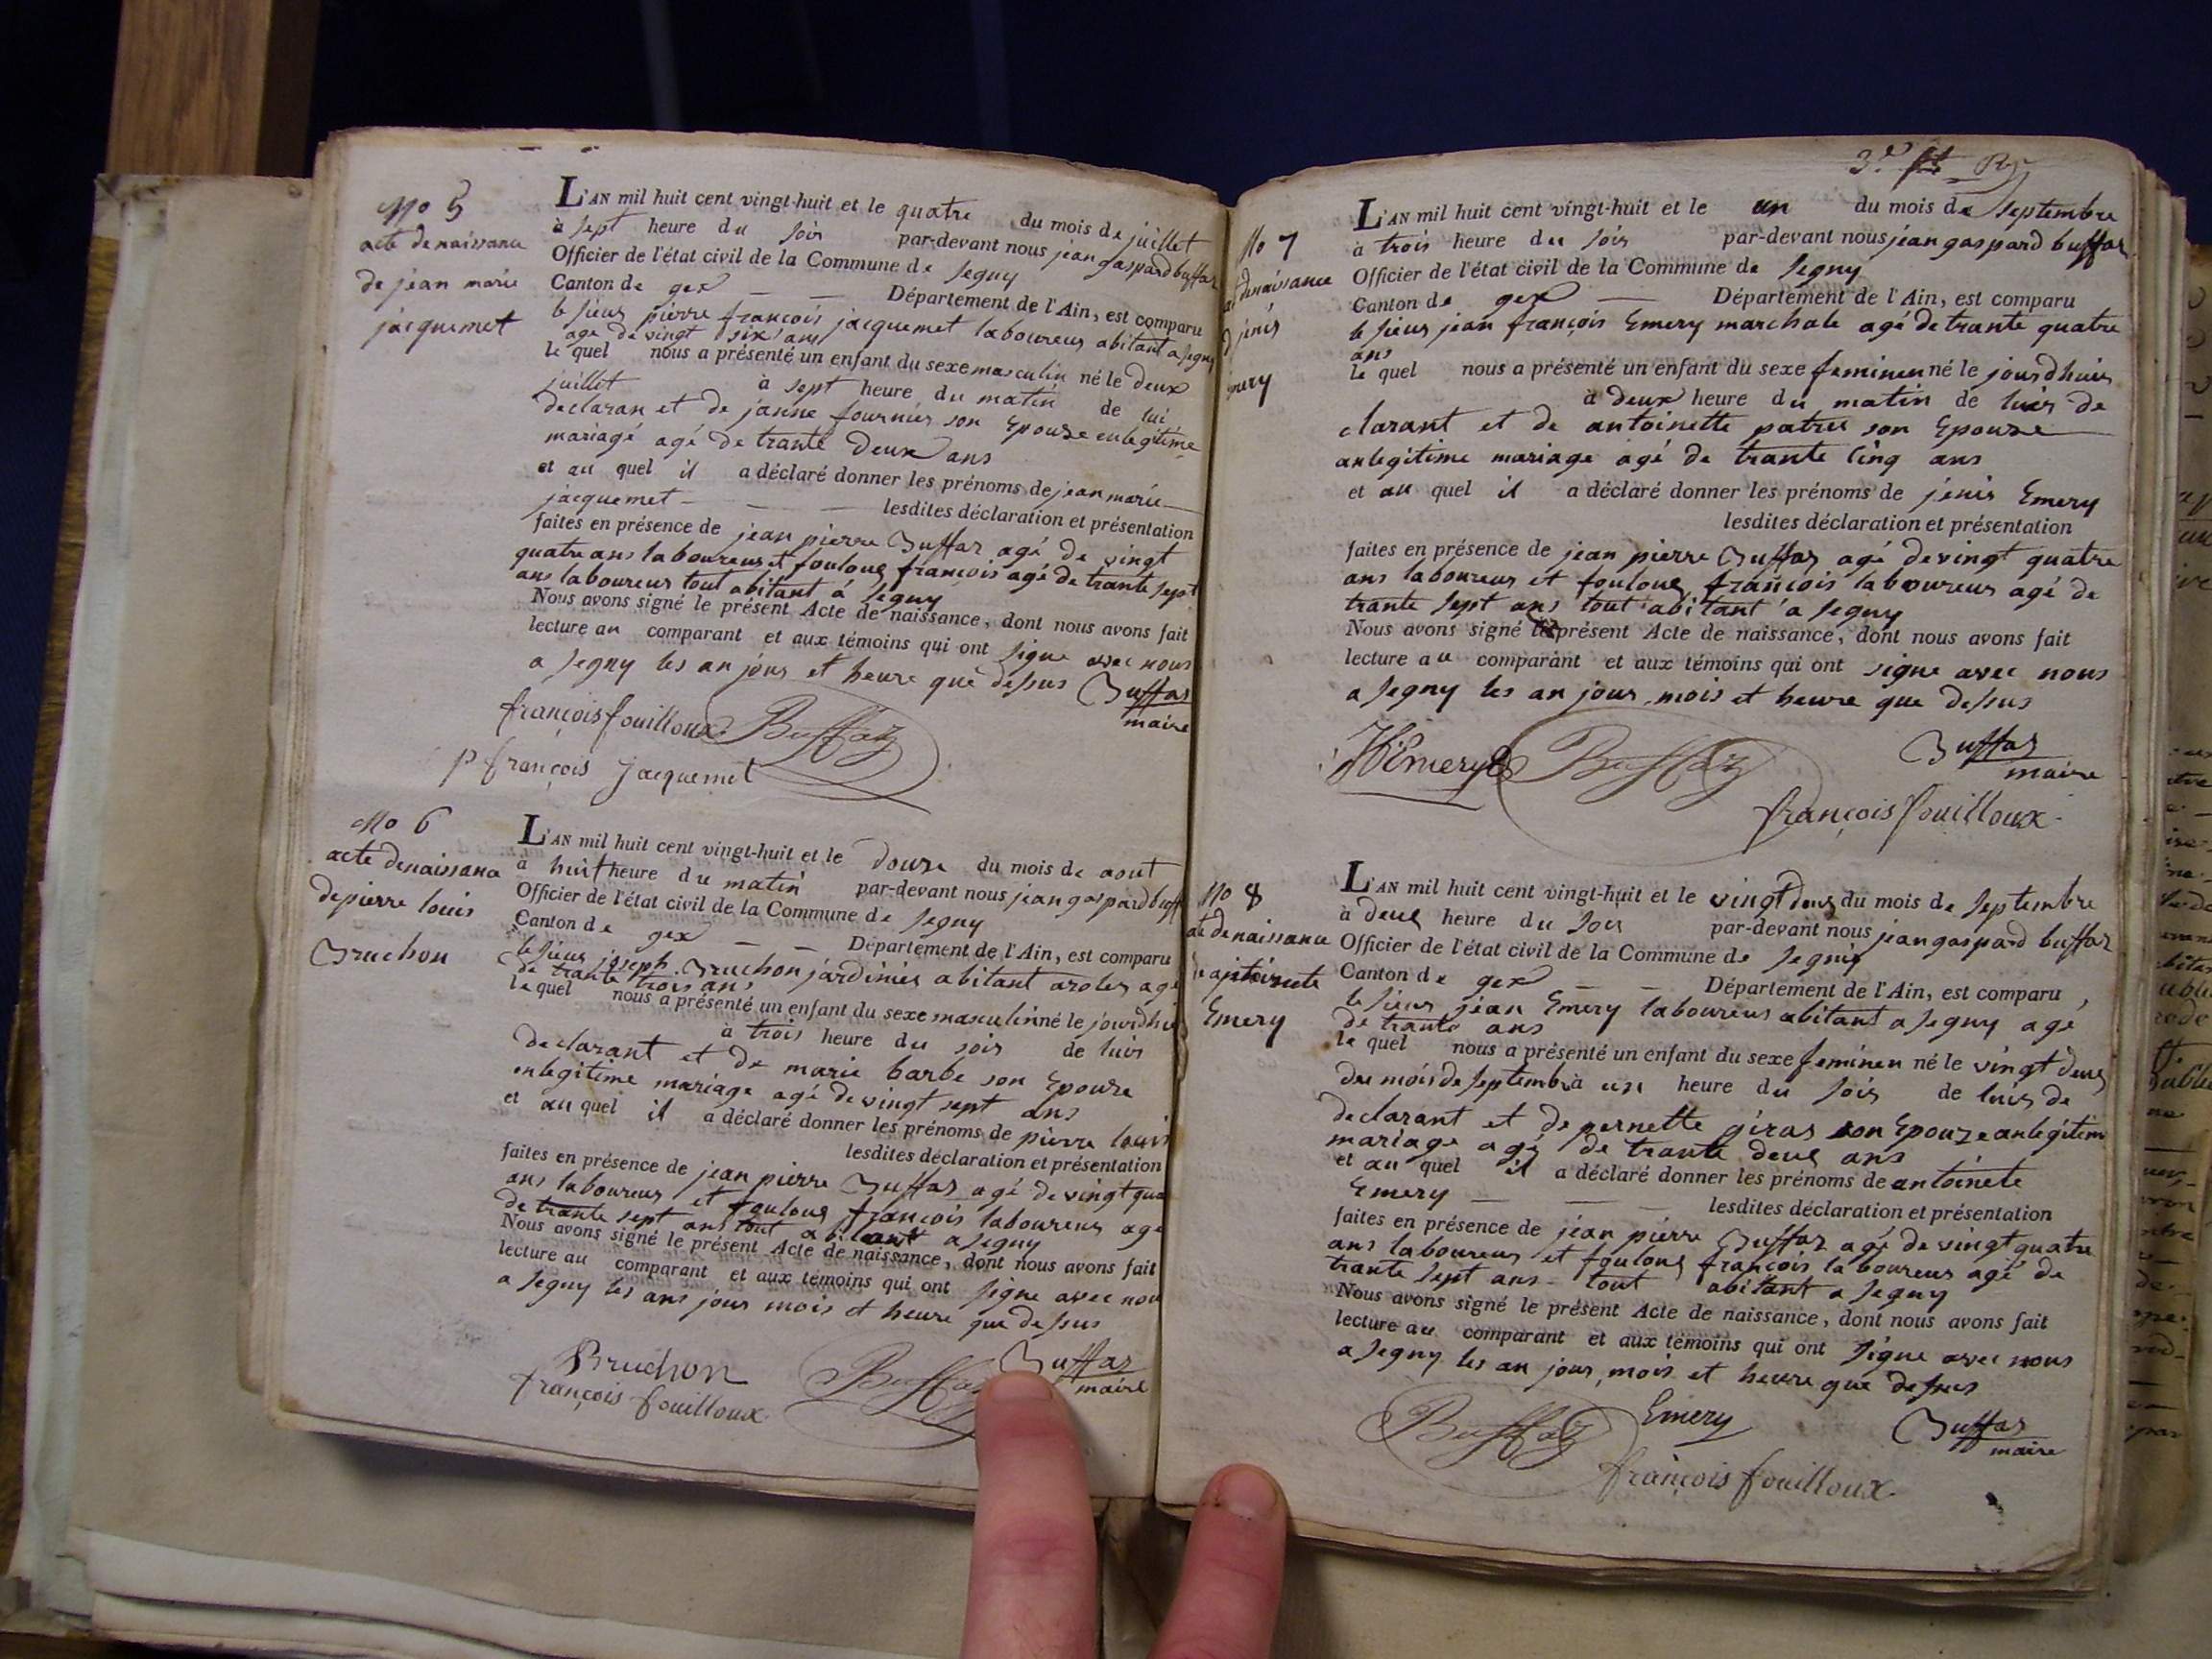 No 5
acte de naissance
de jean marie
jacquemet
L'AN mil huit cent vingt-huit et le quatre du mois de juillet
à sept heure du soir par-devant nous jean gaspard buffaz
Officier de l'état civil de la Commune de segny
Canton de gex — — Département de l'Ain, est comparu
le sieur pierre françois jacquemet laboureur abitant a segny
age de vingt six ans
le quel nous a présenté un enfant du sexe masculin né le deux
juillet à sept heure du matin de lui
declaran et de janne fournier son Epouse en legitime
mariagé agé de trante deux ans
et au quel il a déclaré donner les prénoms de jean marie
jacquemet — — — lesdites déclaration et présentation
faites en présence de jean pierre Buffaz agé de vingt
quatre ans laboureur et fouloux françois agé de trante sept
ans laboureur tout abitant à segny
Nous avons signé le présent Acte de naissance, dont nous avons fait
lecture au comparant et aux témoins qui ont signe avec nous
a segny les an jour et heure que dessus Buffaz
maire
françois fouilloux Buffaz
p françois jacquemet
No 6
acte de naissance
de pierre louis
Bruchon
L'AN mil huit cent vingt-huit et le douze du mois de aout
à huit heure du matin par-devant nous jean gaspard buff
Officier de l'état civil de la Commune de segny
Canton de gex — — Département de l'Ain, est comparu
le sieur joseph Bruchon jardinier abitant
de trante trois ans
le quel nous a présenté un enfant du sexe masculin né le jourdhui
à trois heure du soir de luis
declarant et de marie barbe son Epouse
en legitime mariage agé de vingt sept ans
et au quel il a déclaré donner les prénoms de pierre louis
lesdites déclaration et présentation
faites en présence de jean pierre Buffaz agé de vingt qua
ans laboureur et fouloux françois laboureur age
de trante sept ans tout abitant a segny
Nous avons signé le présent Acte de naissance, dont nous avons fait
lecture au comparant et aux témoins qui ont signe avec nou
a segny les ans jour mois et heure que dessus
Bruchon Buffaz Buffaz
maire
françois fouilloux
3.e Rs
No 7
de naissance
d jenis
Emery
L'AN mil huit cent vingt-huit et le un du mois de septembre
à trois heure du soir par-devant nous jean gaspard buffaz
Officier de l'état civil de la Commune de segny
Canton de gex — Département de l'Ain, est comparu
le sieur jean françois Emery marchale agé de trante quatre
ans
le quel nous a présenté un enfant du sexe feminen né le jourdhuis
à deux heure du matin de luis de
clarant et de antoinette patrus son Epouse
an legitime mariage agé de trante cinq ans
et au quel il a déclaré donner les prénoms de jenis Emery
lesdites déclaration et présentation
faites en présence de jean pierre Buffaz agé de vingt quatre
ans laboureur et fouloux françois laboureur agé de
trante sept ans tout abitant a segny
Nous avons signé le présent Acte de naissance, dont nous avons fait
lecture au comparant et aux témoins qui ont signe avec nous
a segny les an jour mois et heure que dessus
Emery Buffaz Buffaz
maire
françois fouilloux
No 8
de naissance
de antoinete
Emery
L'AN mil huit cent vingt-huit et le vingt deux du mois de septembre
à deux heure du soir par-devant nous jean gaspard buffaz
Officier de l'état civil de la Commune de segniy
Canton de gex — — Département de l'Ain, est comparu
le sieur jean Emery laboureur abitant a segny age
de trante ans
le quel nous a présenté un enfant du sexe feminen né le vingt deux
du mois de septembre à un heure du soir de luis de
declarant et de pernette giras son Epouze an legitim
mariage agé de trante deux ans
et au quel il a déclaré donner les prénoms de antoinete
Emery — — lesdites déclaration et présentation
faites en présence de jean pierre Buffaz agé de vingt quatre
ans laboureur et fouloux françois laboureur agé de
trante sept ans tout abitant a segny
Nous avons signé le présent Acte de naissance, dont nous avons fait
lecture au comparant et aux témoins qui ont signe avec nous
a segny les an jour mois et heure que desus
Buffaz Emery Buffaz
maire
françois fouilloux